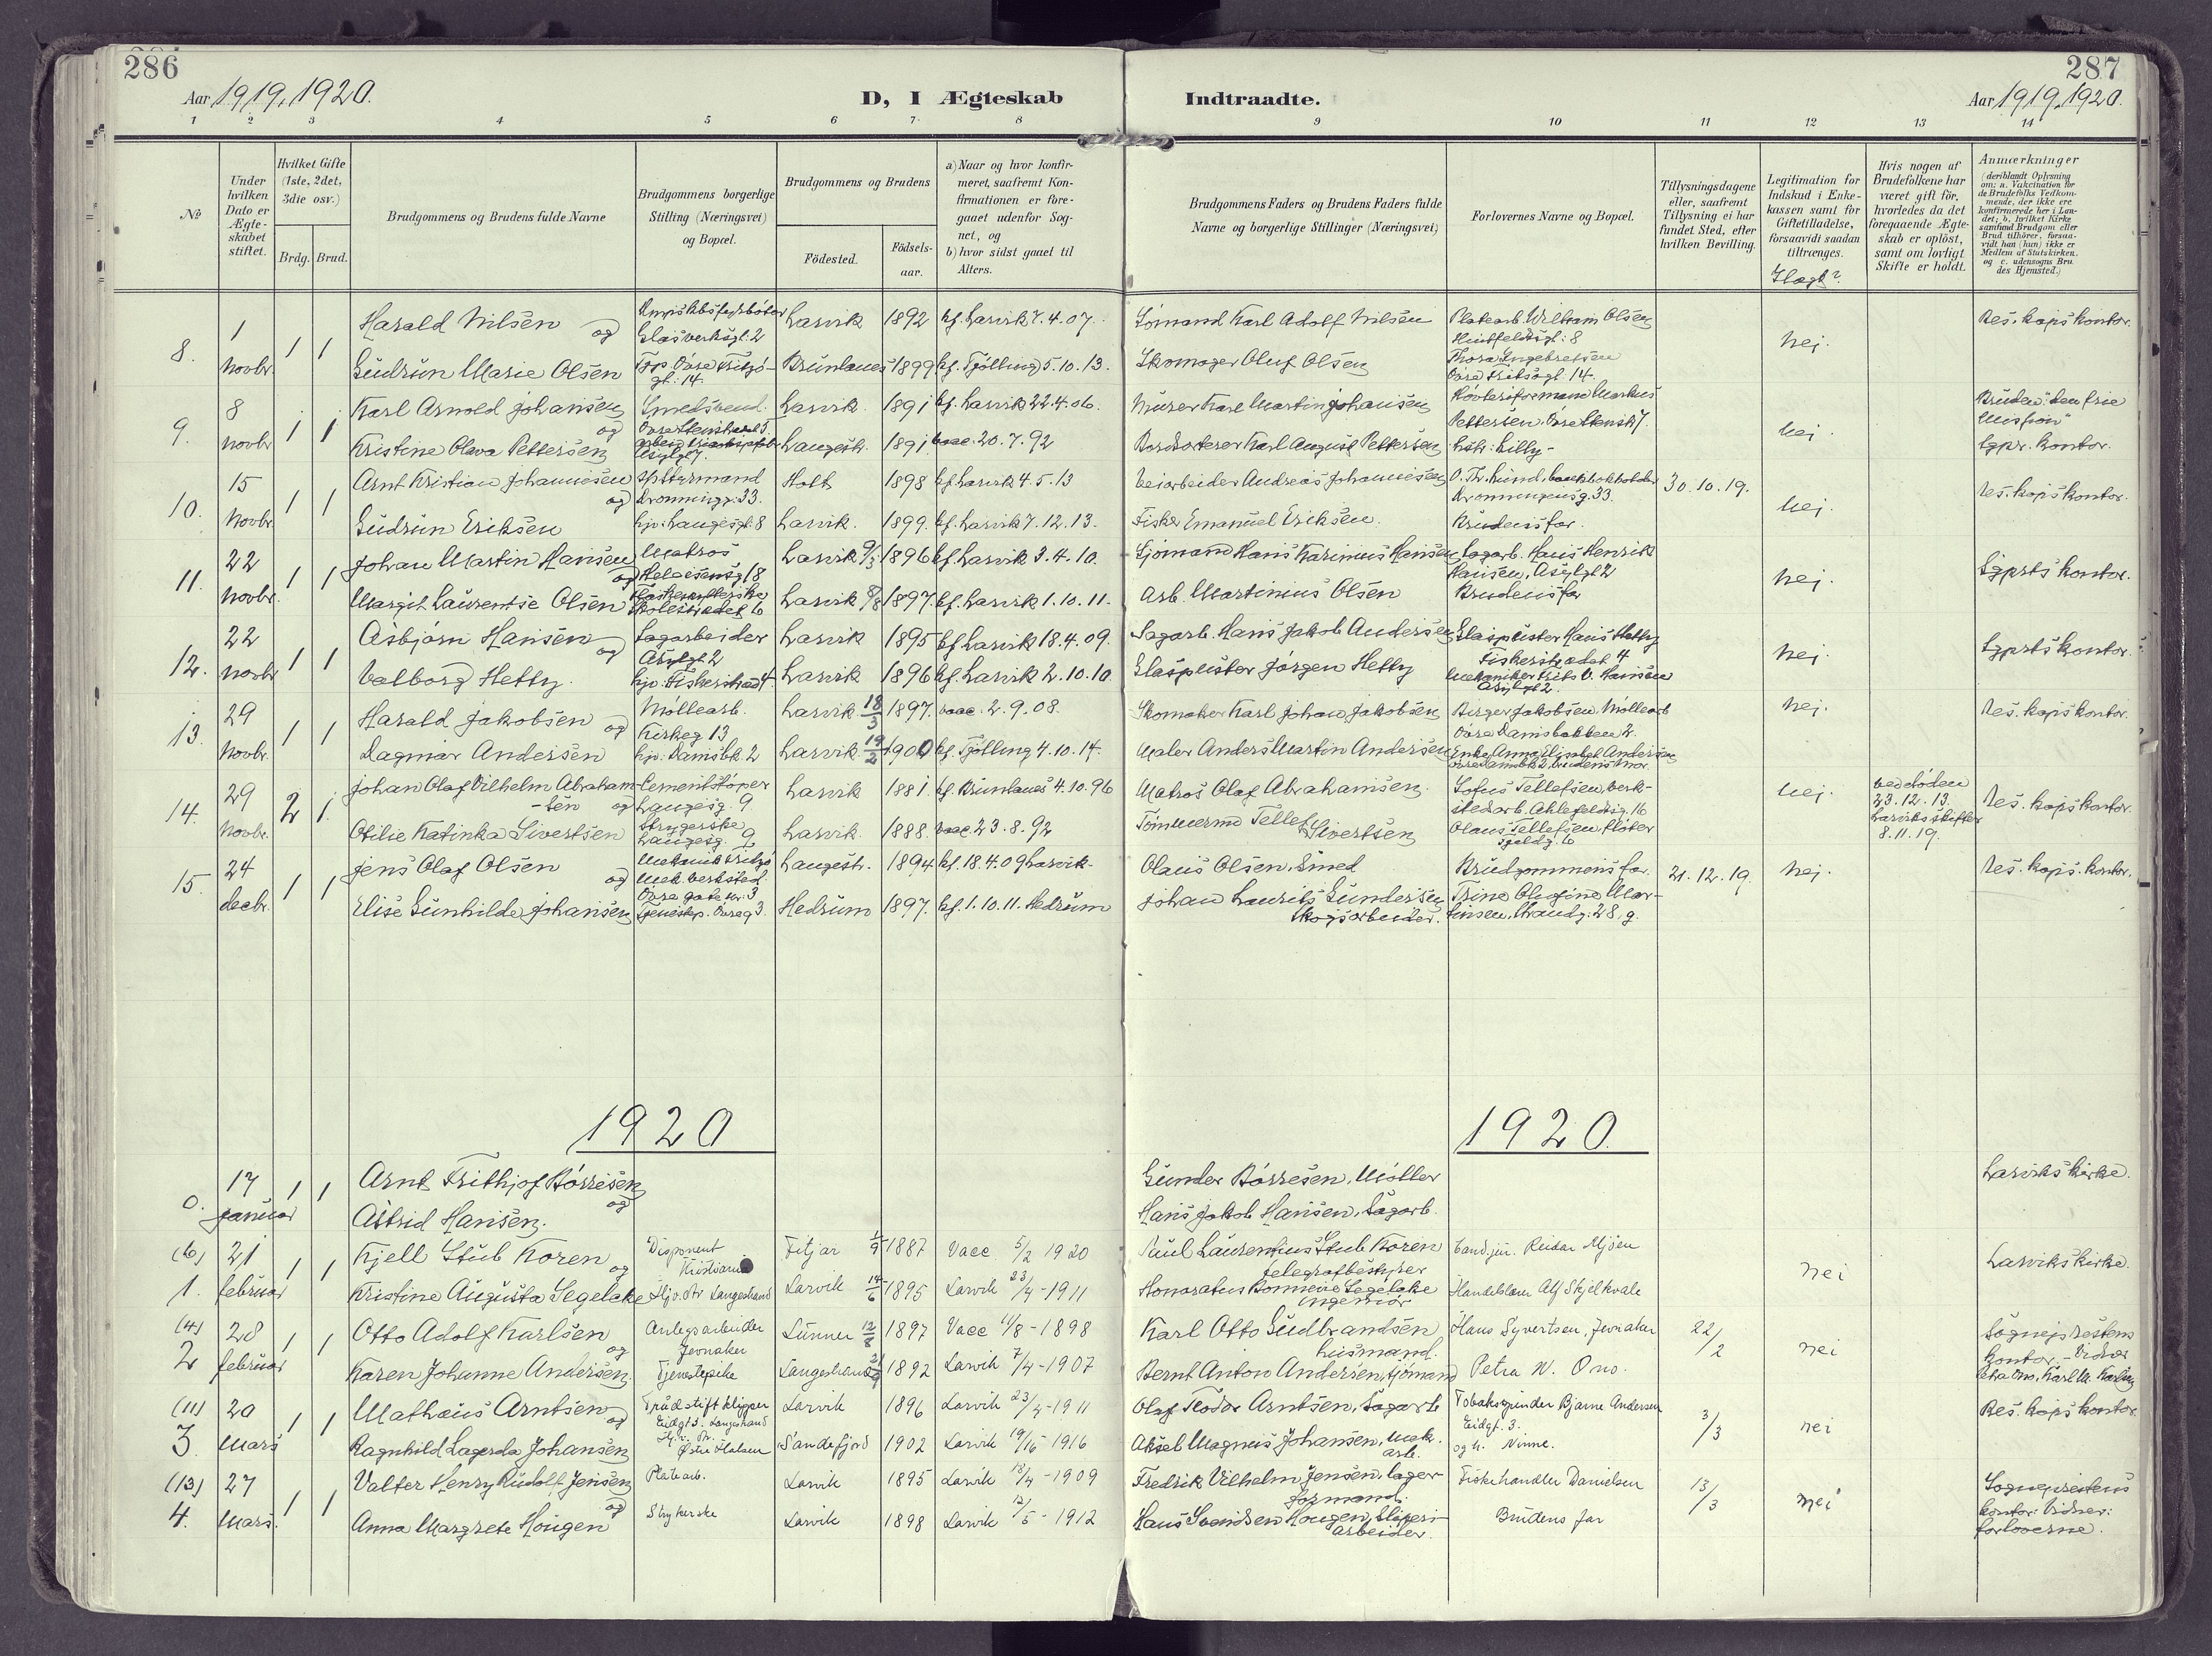 286
287
Aar 1919, 1920.
D, I Ægteskab
Indtraadte.
Aar 1919, 1920.
1 2 3 4 5 6 7 8 9 10 11 12 13 14
№
Under hvilken Dato er Ægteskabet stiftet.
Hvilket Gifte (1ste, 2det, 3die osv.)
Brdg. Brud.
Brudgommens og Brudens fulde Navne
Brudgommens borgerlige Stilling (Næringsvei) og Bopæl.
Brudgommens og Brudens
Födested.
Födselsaar.
a) Naar og hvor konfirmeret, saafremt Konfirmationen er foregaaet udenfor Sognet, og
b) hvor sidst gaaet til Alters.
Brudgommens Faders og Brudens Faders fulde Navne og borgerlige Stillinger (Næringsvei)
Forlovernes Navne og Bopæl.
Tillysningsdagene eller, saafremt Tillysning ei har fundet Sted, efter hvilken Bevilling.
Legitimation for Indskud i Enkekassen samt for Giftetilladelse, forsaavidt saadan tiltrænges.
Slægt?
Hvis nogen af Brudefolkene har været gift för, hvorledes da det foregaaende Ægteskab er oplöst, samt om lovligt Skifte er holdt.
Anmærkninger
(deriblandt Oplysning om: a. Vakcination for de Brudefolks Vedkommende, der ikke ere konfirmerede her i Landet; b. hvilket Kirkesamfund Brudgom eller Brud tilhörer, forsaavidt han (hun) ikke er Medlem af Statskirken. og c. udensogns Brudes Hjemsted.)
8. 1 1 1 Harald Nilsen og Glasverksgt. 2 Larvik 1892 kf. Larvik 7.4.07. Sömand Karl Adolf Nilsen Platearb. William Olsen Huitfeldtsgt. 8 nej. Res. kaps kontor.
Novbr. Gudrun Marie Olsen Øvre Fritzögt. 14. Brunlanes 1899 kf. Tjölling 5.10.13. Skomager Oluf Olsen Thora Engebretsen Övre Fritsögt. 14.
9. 8 1 1 Karl Arnold Johansen og Smedsvend. Larvik 1891 kf. Larvik 22.4.06. Murer Karl Martin Johansen Markus Pettersen nej Bruden "den frie Mission"
Novbr. Kristine Olava Pettersen Langestr. 1891 vacc. 20.7.92 Bordsorterer Karl August Pettersen hstr. Lilly - Sgpr. kontor.
10. 15 1 1 Arnt Kristian Johannesen og Dronningg. 33. Holt 1898 kf. Larvik 4.5.13 Veiarbeider Andreas Johannesen O. Th. Lund, bankbokholder Dronningensg. 33. 30.10.19. nej. Res. kaps kontor.
Novbr. Gudrun Eriksen hjv. Laugesgt. 8 Larvik. 1899. kf. Larvik 7.12.13. Fisker Emanuel Eriksen. Brudens far.
11. 22 1 1 Johan Martin Hansen og Matros Larvik 9/3 1896 kf. Larvik 3.4.10. Sjömand Hans Karinius Hansen Sagarb. Hans Henrik Hansen, Asylgt 2 nej. Sgprsts kontor.
Novbr. Margit Laurentse Olsen Larvik 8/8 1897. kf. Larvik 1.10.11. Arb. Martinius Olsen Brudens far
12. 22 1 1 Asbjörn Hansen og Sagarbeider Asylgt 2 Larvik 1895 kf. Larvik 18.4.09. Sagarb. Hans Jakob Andersen Glaspuster Hans Hetty Fiskerstrædet 4 nej. Sgprsts kontor.
Novbr. Valborg Hetty. hjv. Fiskerstræd 4. Larvik 1896 kf. Larvik 2.10.10. Glaspuster Jörgen Hetty Mekaniker Frits V. Hansen Asylgt 2.
13. 29 1 1 Harald Jakobsen og Möllearb. Kirkeg 13 Larvik 18/3 1897. vacc. 2.9.08. Skomaker Karl Johan Jakobsen Birger Jakobsen, Möllearb Övre Damsbakken 2. nej. Res. kaps kontor.
Novbr. Dagmar Andersen hjv. Damsbk 2 Larvik 19/2 1900 kf. Tjölling 4.10.14. Maler Anders Martin Andersen Enke Anna Elisabet Andersen Övre Damsbk 2, brudens mor.
14. 29 2 1 Johan Olaf Vilhelm Abrahamsen og Cementstöper Laugesg. 9 Larvik 1881. kf. Brunlanes 4.10.96 Matros Olaf Abrahamsen. Sofus Tellefsen, verkstedarb. Ahlefeldtsg. 16 nej. ved döden 23.12.13. Larviks skifter 8.11.19. Res. kaps kontor.
Novbr. Otilie Katinka Sivertsen Strygerske Laugesg. 9 Larvik. 1888. vacc. 23.8.92 Tömmermd Tellef Sivertsen Olaus Tellefsen flöter
15. 24 1 1 Jens Olaf Olsen og Langestr. 1894 kf. 18.4.09 Larvik. Olaus Olsen, Smed Brudgommens far. 21.12.19. nej. Res. kaps. kontor.
decbr. Elise Gunhilde Johansen Hedrum 1897. kf. 1.10.11. Hedrum Johan Laurits Gundersen Skogsarbeider. Trine Olufine Martinsen, Strandg. 28, g.
1920
1920.
0. 17 1 1 Arnt Frithjof Börresen og Gunder Börresen, Möller Larviks kirke.
Januar Astrid Hansen. Hans Jakob Hansen, Sagarb.
(6) 21 1 1 Kjell Stub Koren og Disponent Kristiania Fitjar 1/9 1887 Vacc 5/2 1920 Paul Laurentius Stub Koren telegrafbestyrer Cand. jur. Reidar Mjöen nei Larviks kirke.
1. februar Kristine Augusta Segelcke Hjv. str Langestrand Larvik 14/6 1895 Larvik 23/4 - 1911 Honoratus Bonnevie Segelcke ingeniör Alf Skjelkvale
(4) 28 1 1 Otto Adolf Karlsen og Anlegsarbeider Jevnaker Lunner 12/8 1897 Vacc 11/8 - 1898 Karl Otto Gudbrandsen husmand. Hans Syvertsen, Jevnaker 22/2 nei Sogneprestens kontor. - Vidner
2 februar Karen Johanne Andersen. Tjenestepike Langestrand 1892 Larvik 7/4 - 1907 Bernt Anton Andersen, sjömand Petra N. Ono. Petra Ono, Karl M. Karlsen
(11) 20 1 1 Mathæus Arntsen og Trådstiftklipper Eidgt 3. Langestrand Larvik 1896 Larvik 23/4 - 1911 Olaf Teodor Arntsen, Sagarb Tobakspinder Bjarne Andersen Eidgt. 3. 3/3 nei Res. kaps kontor.
3. Mars Ragnhild Lagerda Johansen Østre Halsen Sandefjord 1902 Larvik 1916 Aksel Magnus Johansen, mek. arb. og h. Ninne.
(13) 27 1 1 Valter Henry Rudolf Jensen og Platearb. Larvik 1895 Larvik 18/4 - 1909 Fredrik Vilhelm Jensen, lagerformand. Fiskehandler Danielsen 13/3 nei Sogneprestens kontor: Vidner: forloverne.
4. Mars. Anna Margrete Hougen Strykerske Larvik 1898 Larvik 12/5 - 1912 Hans Svendsen Hougen, Sliperiarbeider. Brudens far